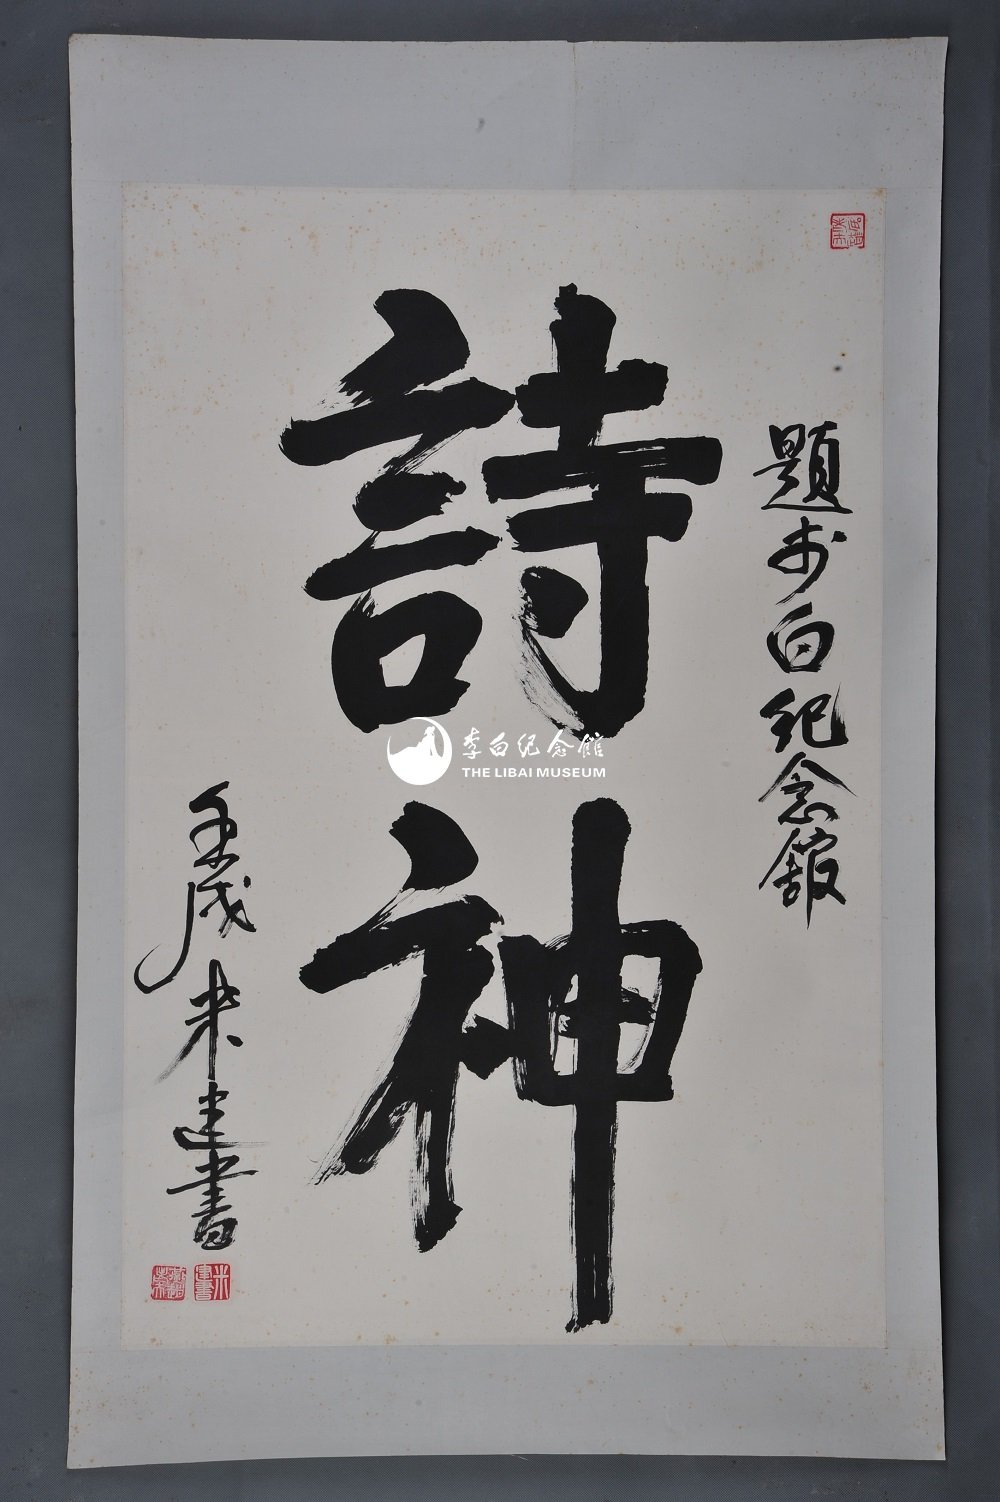 題李白纪念館
詩神
壬戌米建書
米建書
李白纪念館
THE LIBAI MUSEUM